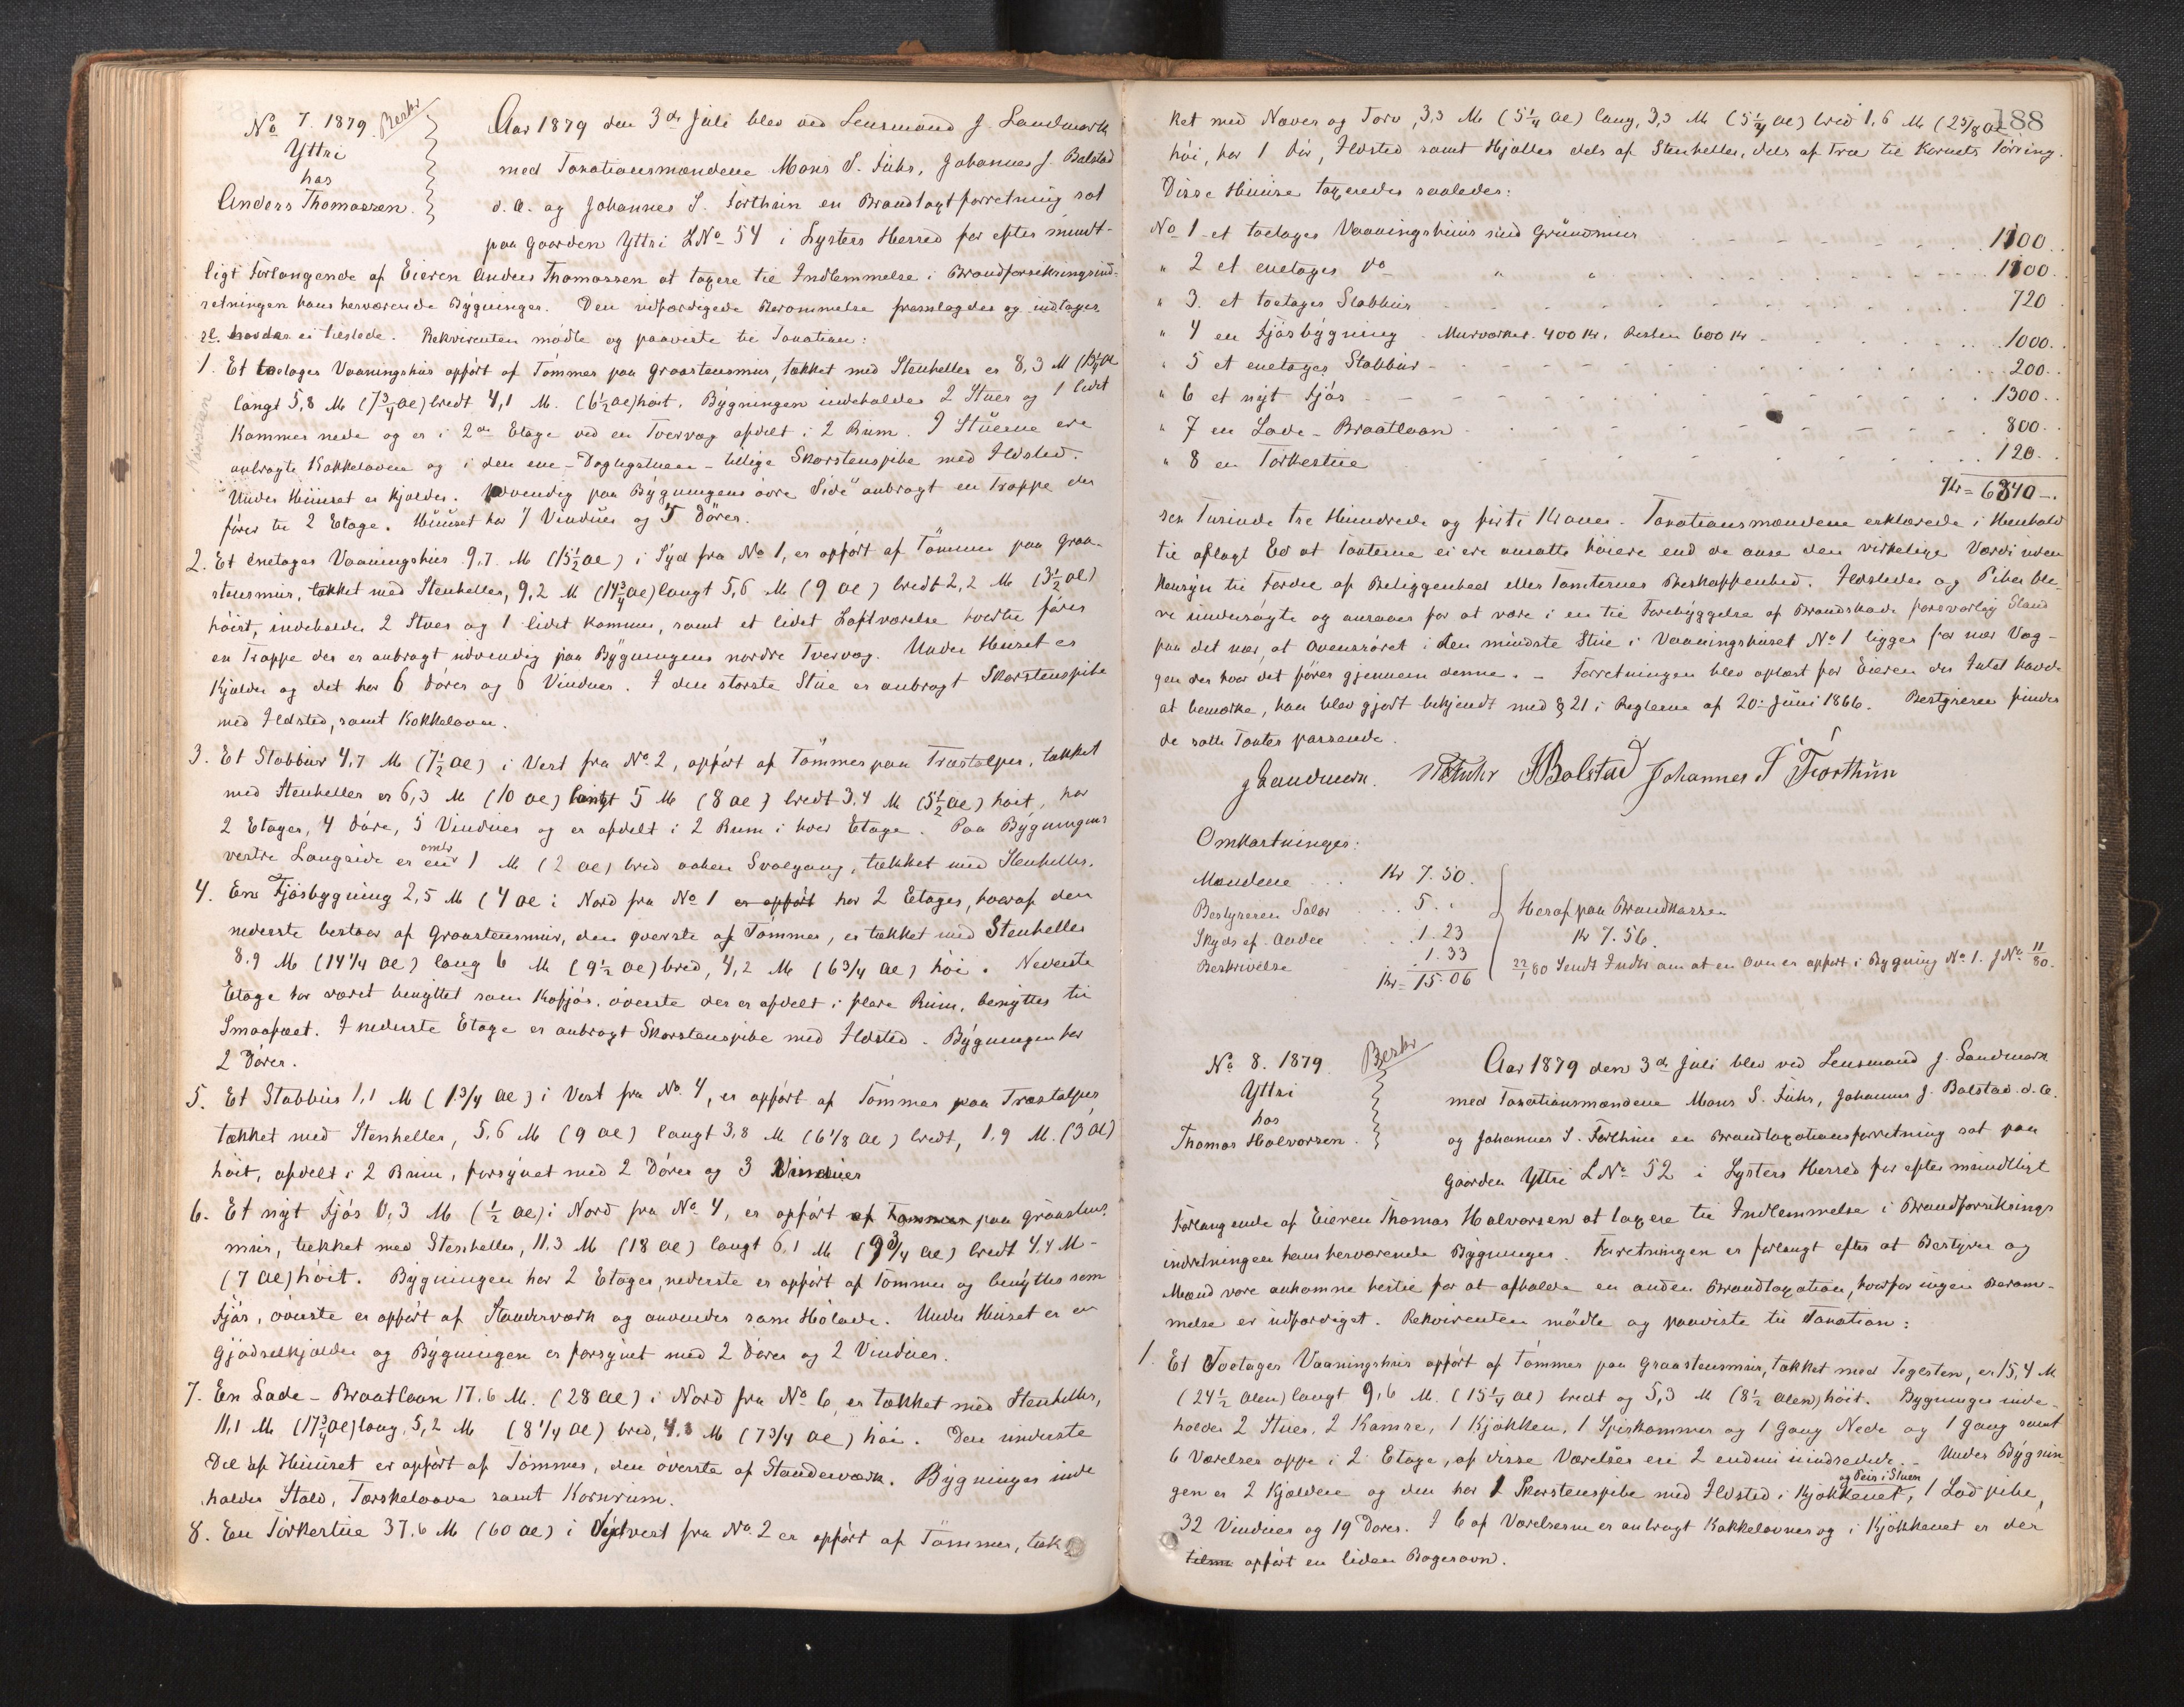 No 7. 1879. Beskr
Yttri
hos
Anders Thomassen.
Aar 1879 den 3de Juli blev ved Lensmand J. Landmark
med Taxationsmændene Mons S. Fuhr, Johannes J. Bolstad
d. a. og Johannes S. Forthun en Brandtaxtforretning sat
paa Gaarden Yttri LNo 54 i Lysters Herred for efter mundt-
ligt Forlangende af Eieren Anders Thomassen at taxere til Indlemmelse i Brandforsikringsind-
retningen hans herværende Bygninger. Den udfærdigede Berammelse fremlagdes og indtages
ei tilstede. Rekvirenten mødte og paaviste til Taxation:
1. Et toetages Vaaningshus opført af Tømmer paa Graastensmur, tækket med Stenheller er 8,3 M (13¼ Al
langt 5,8 M (7¾ Al) bredt 4,1 M. (6½ Al) høit. Bygningen indeholder 2 Stuer og 1 lidet
Kammer nede og er i 2den Etage ved en Tvervæg afdelt i 2 Rum. I Stuerne ere
anbragte Kakkelovne og i den ene - Daglugstuen - tillige Skorstenspibe med Ildsted.
Under Huuset er Kjelder. Udvendig paa Bygningens øvre Side anbragt en Trappe der
fører til 2 Etage. Huuset har 7 Vinduer og 5 Døre.
2. Et enetages Vaaningshus 9,7 M (15½ Al) i Syd fra No 1, er opført af Tømmer paa Graa-
stensmur, tækket med Stenheller, 9,2 M (14¾ Al) langt 5,6 M (9 Al) bredt 2,2 M (3½ Al)
høit, indeholder 2 Stuer og 1 lidet Kammer, samt et lidet Loftværelse hvortil fører
en Trappe der er anbragt udvendig paa Bygningens nordre Tvervæg. Under Huset er
Kjelder og det har 6 Døre og 6 Vinduer. I den største Stue er anbragt Skorstenspibe
med Ildsted, samt Kakkelovn.
3. Et Stabbur 4,7 M (7½ Al) i Vest fra No. 2, opført af Tømmer paa Træstolper, tækket
med Stenheller er 6,3 M (10 Al) langt 5 M (8 Al) bredt 3,4 M (5½ Al) høit, har
2 Etager, 4 Døre, 5 Vinduer og er afdelt i 2 Rum i hver Etage. Paa Bygningens
vestre Langside er en omtr 1 M (2 Al) bred aaben Svalgang, tækket med Stenheller.
4. En Fjøsbygning 2,5 M (4 Al i Nord fra No 1 er opført har 2 Etager, hvoraf den
nederste bestaar af Graastensmur, den øverste af Tømmer, er tækket med Stenheller
8,9 M (14¼ Al) lang 6 M (9½ Al) bred, 4,2 M (6¾ Al) høi. Nederste
Etage har været benyttet som Kofjøs, øverste der er afdelt i flere Rum, benyttes til
Smaafæet. I nederste Etage er anbragt Skorstenspibe med Ildsted. Bygningen har
2 Døre.
5. Et Stabbur 1,1 M (1¾ Al) i Vest fra No. 4, er opført af Tømmer paa Træstolper
tækket med Stenheller, 5,6 M (9 Al) langt 3,8 M (6⅛ Al) bredt, 1,9 M. (3 Al)
høit, afdelt i 2 Rum, forsynet med 2 Døre og 3 Vinduer
6. Et nyt Fjøs 0,3 M (½ Al) i Nord fra No 4, er opført af Tømmer paa Graastens
mur, tækket med Stenheller, 11,3 M (18 Al) langt 6,1 M (9¾ Al) bredt 4,4 M -
(7 Al) høit. Bygningen har 2 Etager, nederste er opført af Tømmer og benyttes som
Fjøs, øverste er opført af Standerværk og anvendes som Hølade. Under Huset er en
Gjødselkjelder og Bygningen er forsynet med 2 Døre og 2 Vinduer.
7. En Lade - Braatlaan 17,6 M. (28 Al) i Nord fra No 6, er tækket med Stenheller,
11,1 M (17¾ Al) lang, 5,2 M (8¼ Al) bred, 4.8 M (7¾ Al) høi. Den underste
Del af Huuset er opført af Tømmer, den øverste af Standerværk. Bygningen inde
holder Stald, Tærskeloave samt Kornrum.
8. En Tørkestue 37,6 M (60 Al) i Sydvest fra No. 2 er opført af Tømmer, tæk
188
ket med Næver og Torv, 3,3 M (5¼ Al) lang, 3,3 M (5¼ Al) bred 1,6 M (2⅝ Al
høi, har 1 Dør, Ildsted samt Hjeller dels af Stenheller, dels af Træ til Kornets Tørring.
Disse Huuse taxeredes saaledes:
No 1 et toetages Vaaningshuus med Grundmur 1100
" 2 et enetages do " " 1100
" 3. et toetages Stabbur 720
" 4 en Fjøsbygning. Murværket 400 Kr, Resten 600 Kr 1000.
" 5 et enetages Stabbur 200.
" 6 et nyt Fjøs 1300.
" 7 en Lade - Braatlaan 800.
" 8 en Tørkestue 120.
Kr = 6340 -.
sex Tusinde tre Hundrede og firti Kroner. Taxationsmændene erklærede i Henhold
til aflagt Ed at Taxterne ei ere ansatte høiere end de anse den virkelige Værdi uden
Hensyn til Fordel af Beliggenhed eller Tomternes Beskaffenhed. Ildsteder og Piber ble-
ve undersøgte og ansaaes for at være i en til Forebyggelse af Brandskade forsvarlig Stand
paa det nær, at Ovensrøret i den mindste Stue i Vaaningshuset No 1 ligger for nær Væg-
gen der hvor det fører gjennem denne. - Forretningen blev oplæst for Eieren der Intet havde
at bemærke, han blev gjort bekjendt med § 21 i Reglerne af 20de Juni 1866. Bestyreren finder
de satte Taxter passende.
J Landmark. MSFuhr JJBolstad Johannes S Forthun
Omkostninger:
Mændene ... Kr 7.50.
Bestyreren Salær ... 5. "
Skyds af Andre ... 1.23
Beskrivelse ... 1.33
Kr = 15.06
Heraf paa Brandkassen
Kr 7.56.
22/1 80 Sendt Indb om at en Ovn er opført i Bygning No 1. JNo 11/80.
No 8. 1879. Beskr
Yttri
hos
Thomas Halvorsen.
Aar 1879 den 3de Juli blev ved Lensmand J. Landmark
med Taxationsmændene Mons S. Fuhr, Johannes J. Bolstad d. a.
og Johannes S. Forthun en Brandtaxationsforretning sat paa
Gaarden Yttri LNo 52 i Lysters Herred for efter mundtligt
Forlangende af Eieren Thomas Halvorsen at taxere til Indlemmelse i Brandforsikrings
indretningen hans herværende Bygninger. Forretningen er forlangt efter at Bestyrer og
Mænd vare ankomne hertil for at afholde en anden Brandtaxation, hvorfor ingen Beram-
melse er udfærdiget. Rekvirenten mødte og paaviste til Taxation:
1. Et Toetages Vaaningshus opført af Tømmer paa Graastensmur, tækket med Teglsten, er 15,4 M
(24½ Alen) langt 9,6 M. (15¼ Al) bredt og 5,3 M (8½ Alen) høit. Bygningen inde-
holder 2 Stuer, 2 Kamre, 1 Kjøkken, 1 Spiskammer og 1 Gang Nede og 1 Gang samt
6 Værelser oppe i 2. Etage, af disse Værelser ere 2 endnu uindredede. - Under Bygnin
gen er 2 Kjeldere og den har 1 Skorstenspibe med Ildsted i Kjøkkenet og Peis i Stuen, 1 Lodpibe,
32 Vinduer og 19 Døre. I 6 af Værelserne er anbragt Kakkelovner og i Kjøkkenet er der
opført en liden Bagerovn.